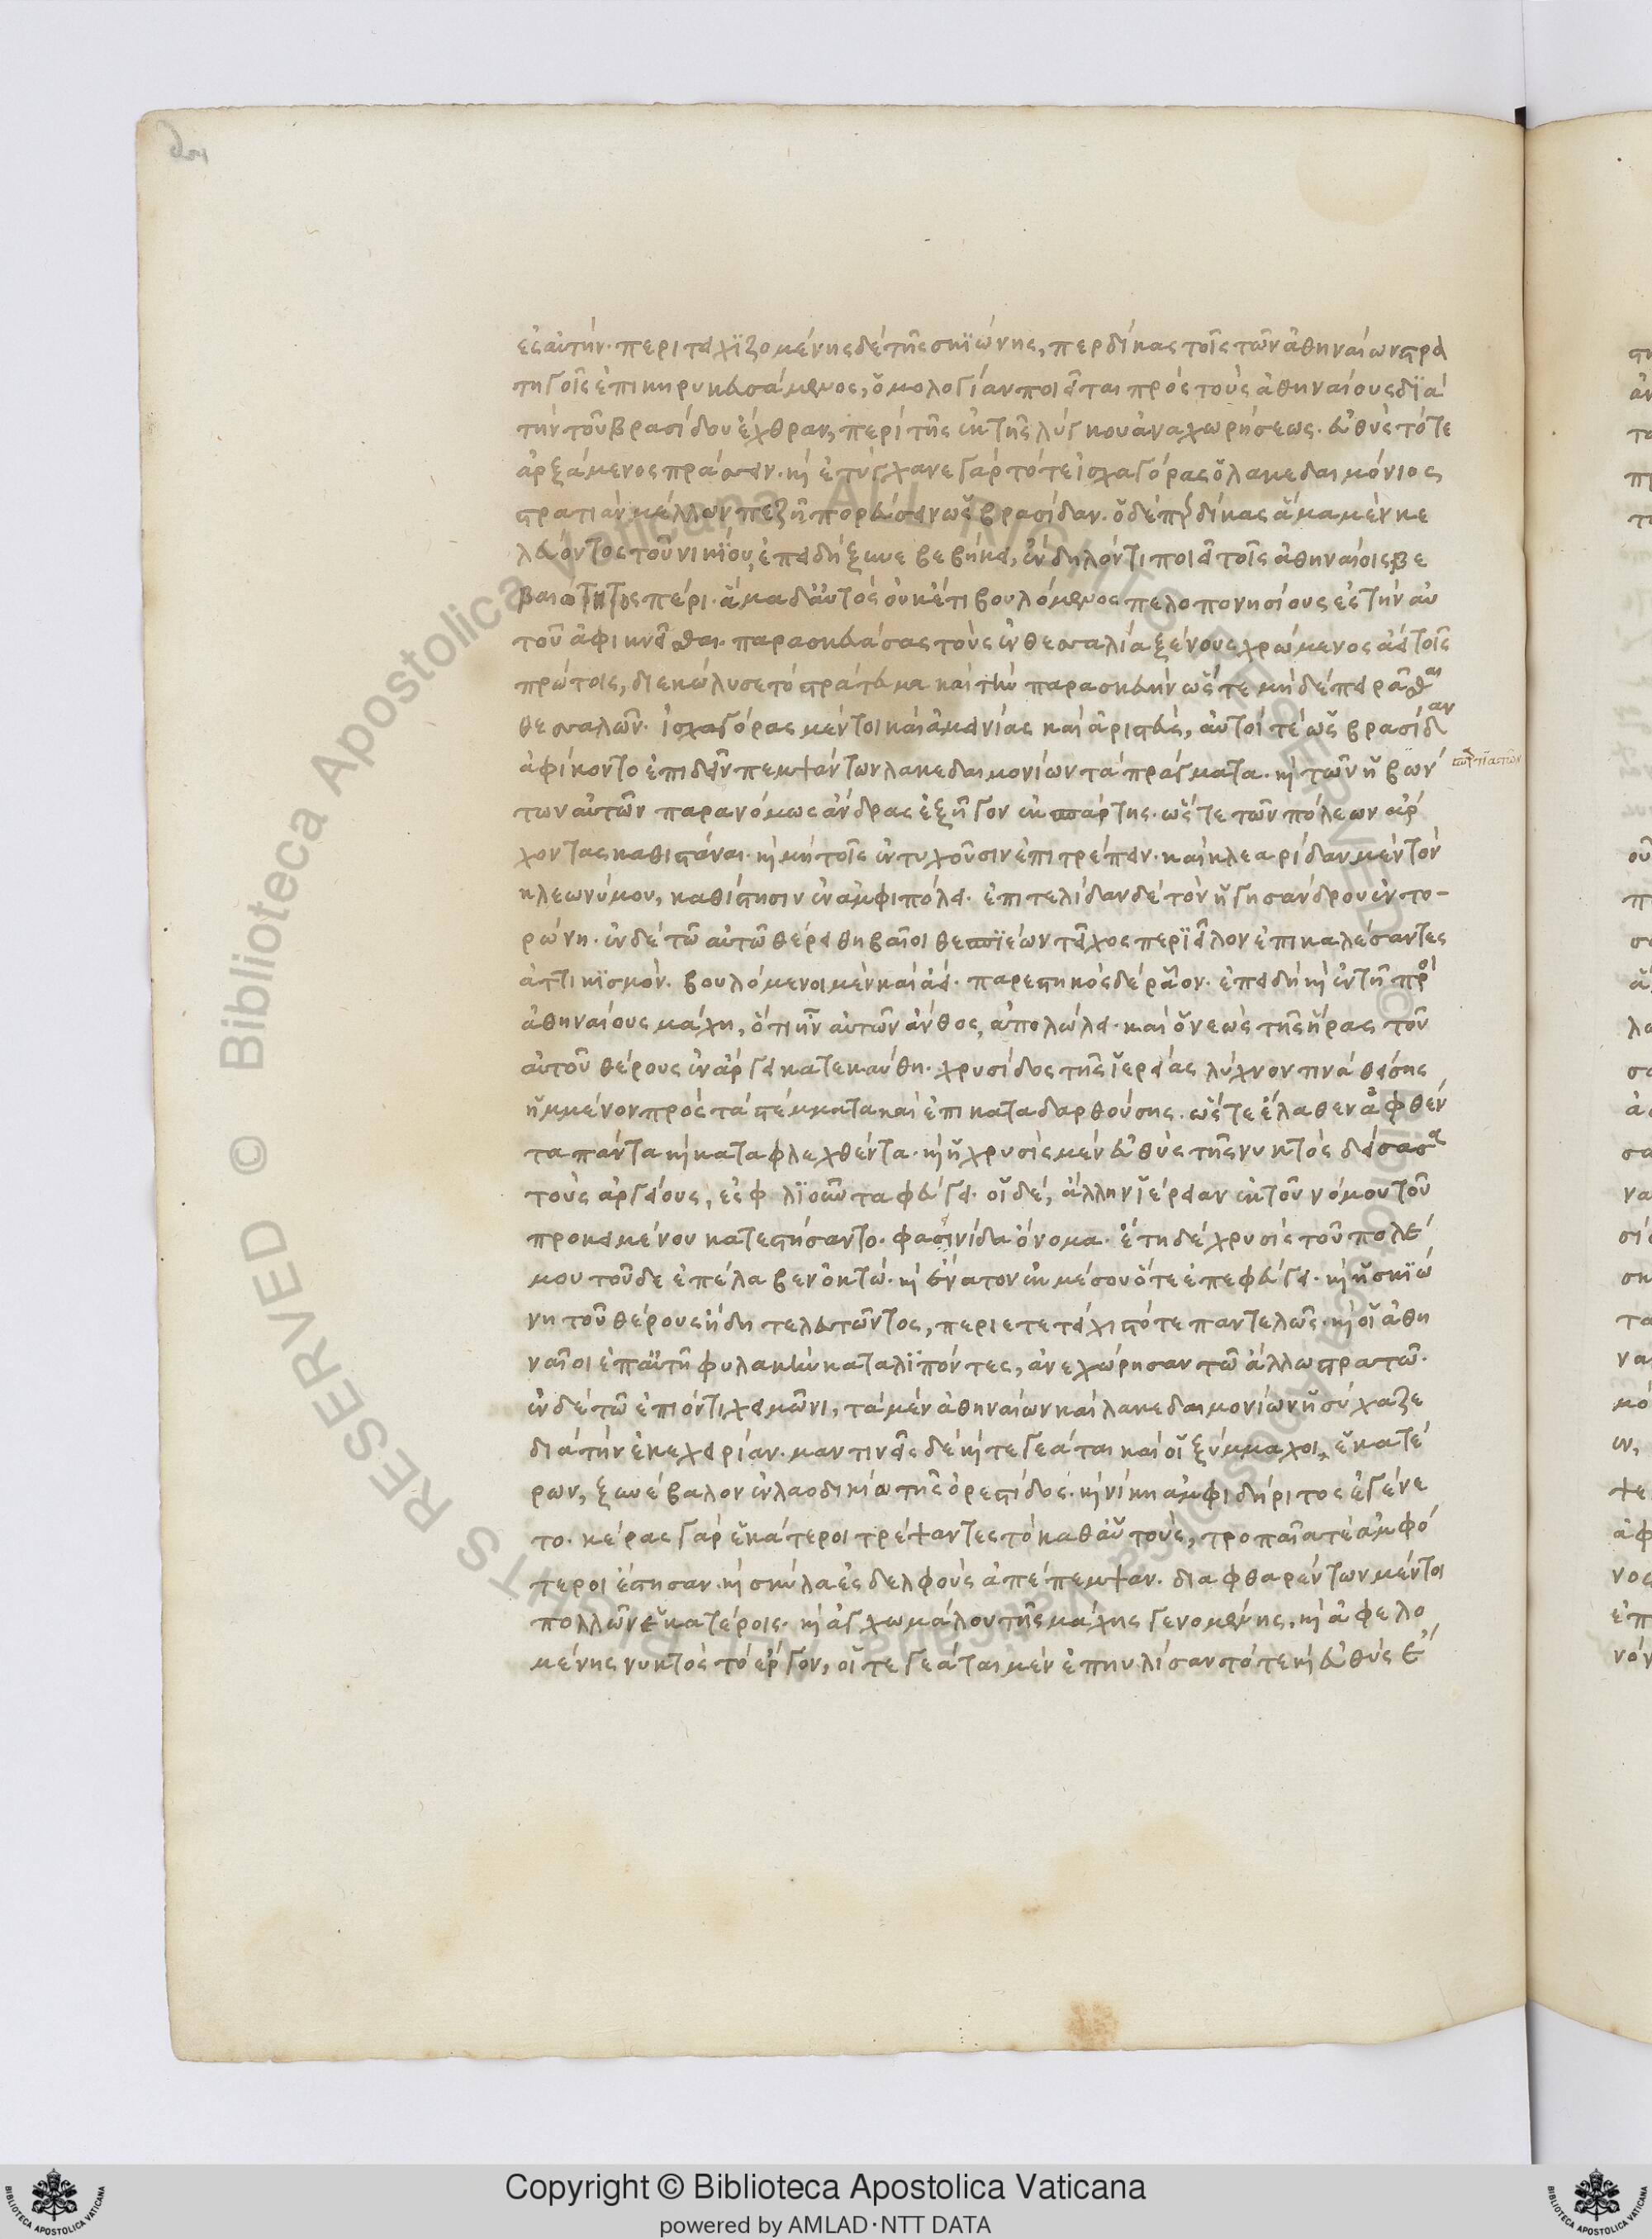 ἐς αὐτήν· περιτειχϊζομένης δὲ τῆς σκϊώνης, περδίκας τοῖς τῶν ἀθηναίων στρα
τηγοῖς ἐπικηρυκευσάμενος, ὁμολογίαν ποιεῖται πρὸς τοὺς ἀθηναίους δϊὰ
τὴν τοῦ βρασίδου ἔχθραν, περὶ τῆς ἐκ τῆς λύγκου ἀναχωρήσεως· εὐθὺς τότε
ἀρξάμενος πράσσειν· καὶ ἐτύγχανε γὰρ τότε ἰσχαγόρας ὁ λακεδαιμόνιος
στρατιὰν μέλλων πεζῆ πορεύσειν ὡς βρασίδαν· ὁ δὲ περδίκας ἅμα μὲν κε
λεύοντος τοῦ νικΐου, ἐπειδὴ ξυνεβεβήκει, ἔνδηλόν τι ποιεῖν τοῖς ἀθηναίοις βε
βαιότητος πέρι· ἅμα δ' αὐτὸς οὐκέτι βουλόμενος πελοπονησίους ἐς τὴν αὐ
τοῦ ἀφικνεῖσθαι· παρασκευάσας τοὺς ἐν θεσσαλία ξένους χρώμενος αἰεὶ τοῖς
πρώτοις, διεκώλυσε τὸ στράτευμα καὶ τὴν παρασκευὴν ὥστε μὴδὲ πειρᾶσθαι
θεσσαλῶν· ἰσχαγόρας μέντοι καὶ ἀμεινίας καὶ ἀριστεὺς, αὐτοί τε ὡς βρασίδαν
ἀφίκοντο ἐπιδεῖν πεμψάντων λακεδαιμονίων τὰ πράγματα· καὶ τῶν ἡβών
των αὐτῶν παρανόμως ἄνδρας ἐξῆγον ἐκ σπάρτης· ὥστε τῶν πόλεων ἄρ
χοντας καθιστάναι· καὶ μὴ τοῖς ἐντυχοῦσιν ἐπιτρέπειν· καὶ κλεαρίδαν μὲν τὸν
κλεωνύμου, καθίστησιν ἐν ἀμφιπόλει· ἐπιτελίδαν δὲ τὸν ἡγησάνδρου ἐν το-
ρώνη· ἐν δὲ τῶ αὐτῶ θέρει θηβαῖοι θεσπϊέων τεῖχος περϊεῖλον ἐπικαλέσαντες
ἀττικϊσμόν· βουλόμενοι μὲν καὶ ἀεί· παρεστηκὸς δὲ ρᾷον· ἐπειδὴ καὶ ἐν τῆ πρὸς
ἀθηναίους μάχη, ὅτι ἦν αὐτῶν ἄνθος, ἀπολώλει· καὶ ὁ νεὼς τῆς ἥρας τοῦ
αὐτοῦ θέρους ἐν ἄργει κατεκαύθη· χρυσίδος τῆς ἱερείας λύχνον τινὰ θείσης
ἡμμένον πρὸς τὰ στέμματα καὶ ἐπικαταδαρθούσης· ὥστε ἔλαθεν ἁφθέν
τα πάντα καὶ καταφλεχθέντα· καὶ ἡ χρυσὶς μὲν εὐθὺς τῆς νυκτὸς δείσασα
τοὺς ἀργείους, ἐς φλϊοῦντα φεύγει· οἱ δὲ, ἄλλην ἱέρειαν ἐκ τοῦ νόμου τοῦ
προκειμένου κατεστήσαντο· φαεινίδα ὄνομα· ἔτη δὲ χρυσὶς τοῦ πολέ
μου τοῦδε ἐπέλαβεν ὀκτώ· καὶ ἔνατον ἐκ μέσου ὅτε ἐπεφεύγει· καὶ ἡ σκϊώ
νη τοῦ θέρους ἤδη τελευτῶντος, περιετετείχιστό τε παντελῶς· καὶ οἱ ἀθη
ναῖοι ἐπ' αὐτῆ φυλακὴν καταλϊπόντες, ἀνεχώρησαν τῶ ἄλλω στρατῶ·
ἐν δὲ τῶ ἐπιόντι χειμῶνι, τὰ μὲν ἀθηναίων καὶ λακεδαιμονίων ἡσύχαζε
διὰ τὴν ἐκεχειρίαν· μαντινεῖς δὲ καὶ τεγεάται καὶ οἱ ξύμμαχοι, ἑκατέ
ρων, ξυνέβαλον ἐν λαοδικίω τῆς ὀρεστίδος· καὶ νίκη ἀμφιδήριτος ἐγένε
το· κέρας γὰρ ἑκάτεροι τρέψαντες τὸ καθ' αὑτοὺς, τροπαῖά τε ἀμφό
τεροι ἔστησαν· καὶ σκῦλα ἐς δελφοὺς ἀπέπεμψαν· διαφθαρέντων μέντοι
πολλῶν ἑκατέροις· καὶ ἀγχωμάλου τῆς μάχης γενομένης, καὶ ἀφελο
μένης νυκτὸς τὸ ἔργον, οἱ τεγεάται μὲν ἐπηυλίσαντό τε καὶ εὐθὺς ἔ
Copyright © Biblioteca Apostolica Vaticana
powered by AMLAD·NTT DATA